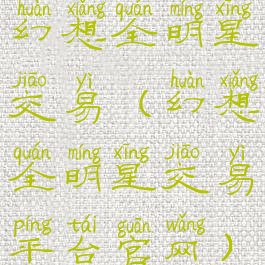 huàn xiǎng quán míng xīng
幻想全明星
jiāo yì huàn xiǎng
交易（幻想
quán míng xīng jiāo yì
全明星交易
píng tái guān wǎng
平台官网）